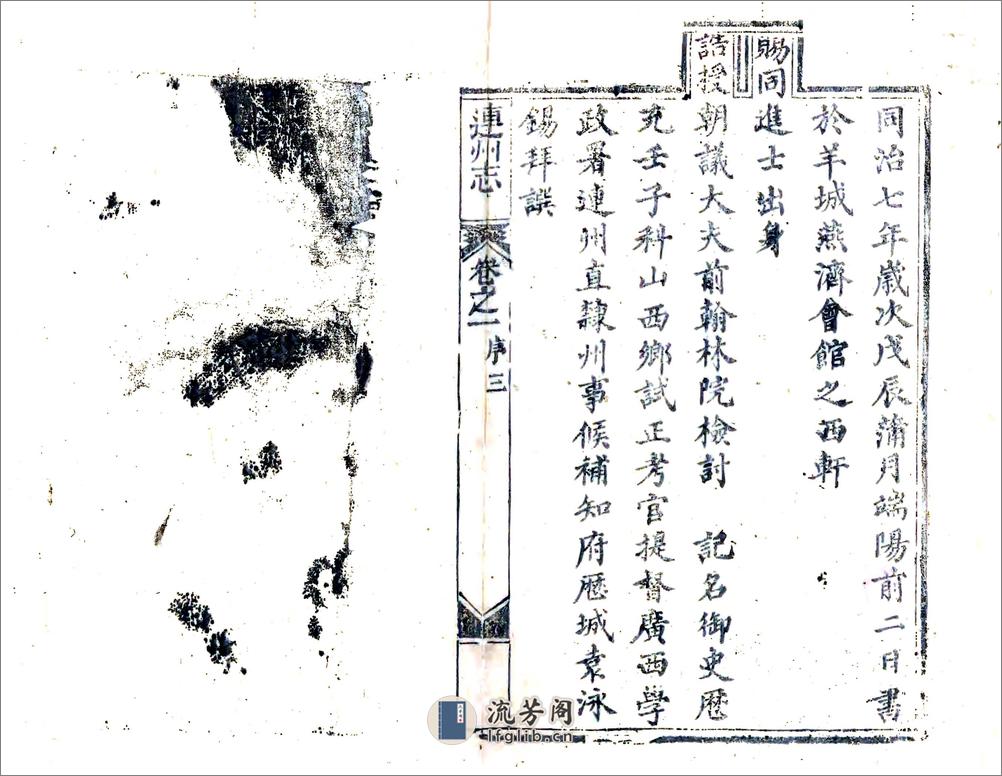 同治七年歲次戊辰蒲月端陽前二日書
於羊城燕濟會館之西軒
賜同進士出身
誥授朝議大夫前翰林院檢討 記名御史歷
充壬子科山西鄉試正考官提督廣西學
政署連州直隸州事候補知府歷城袁泳
錫拜譔
連州志 卷之一 序 三
流芳阁
lfglib.cn